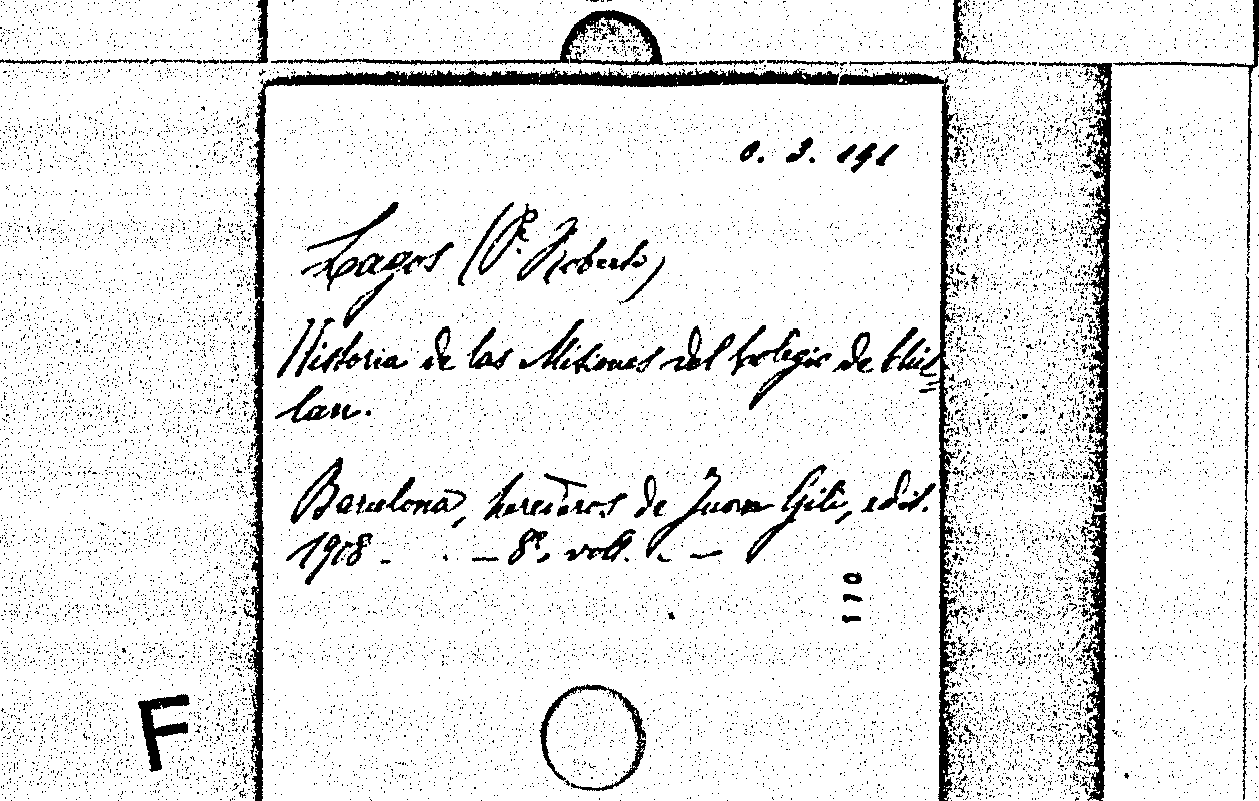 Lagos (P.e Roberto)
Historia de las Misiones del Colegio de Chil=
lan.
Barcelona, herederos de Juan Gili, edit.
1908 - . - 8º, voll. . -
170
F